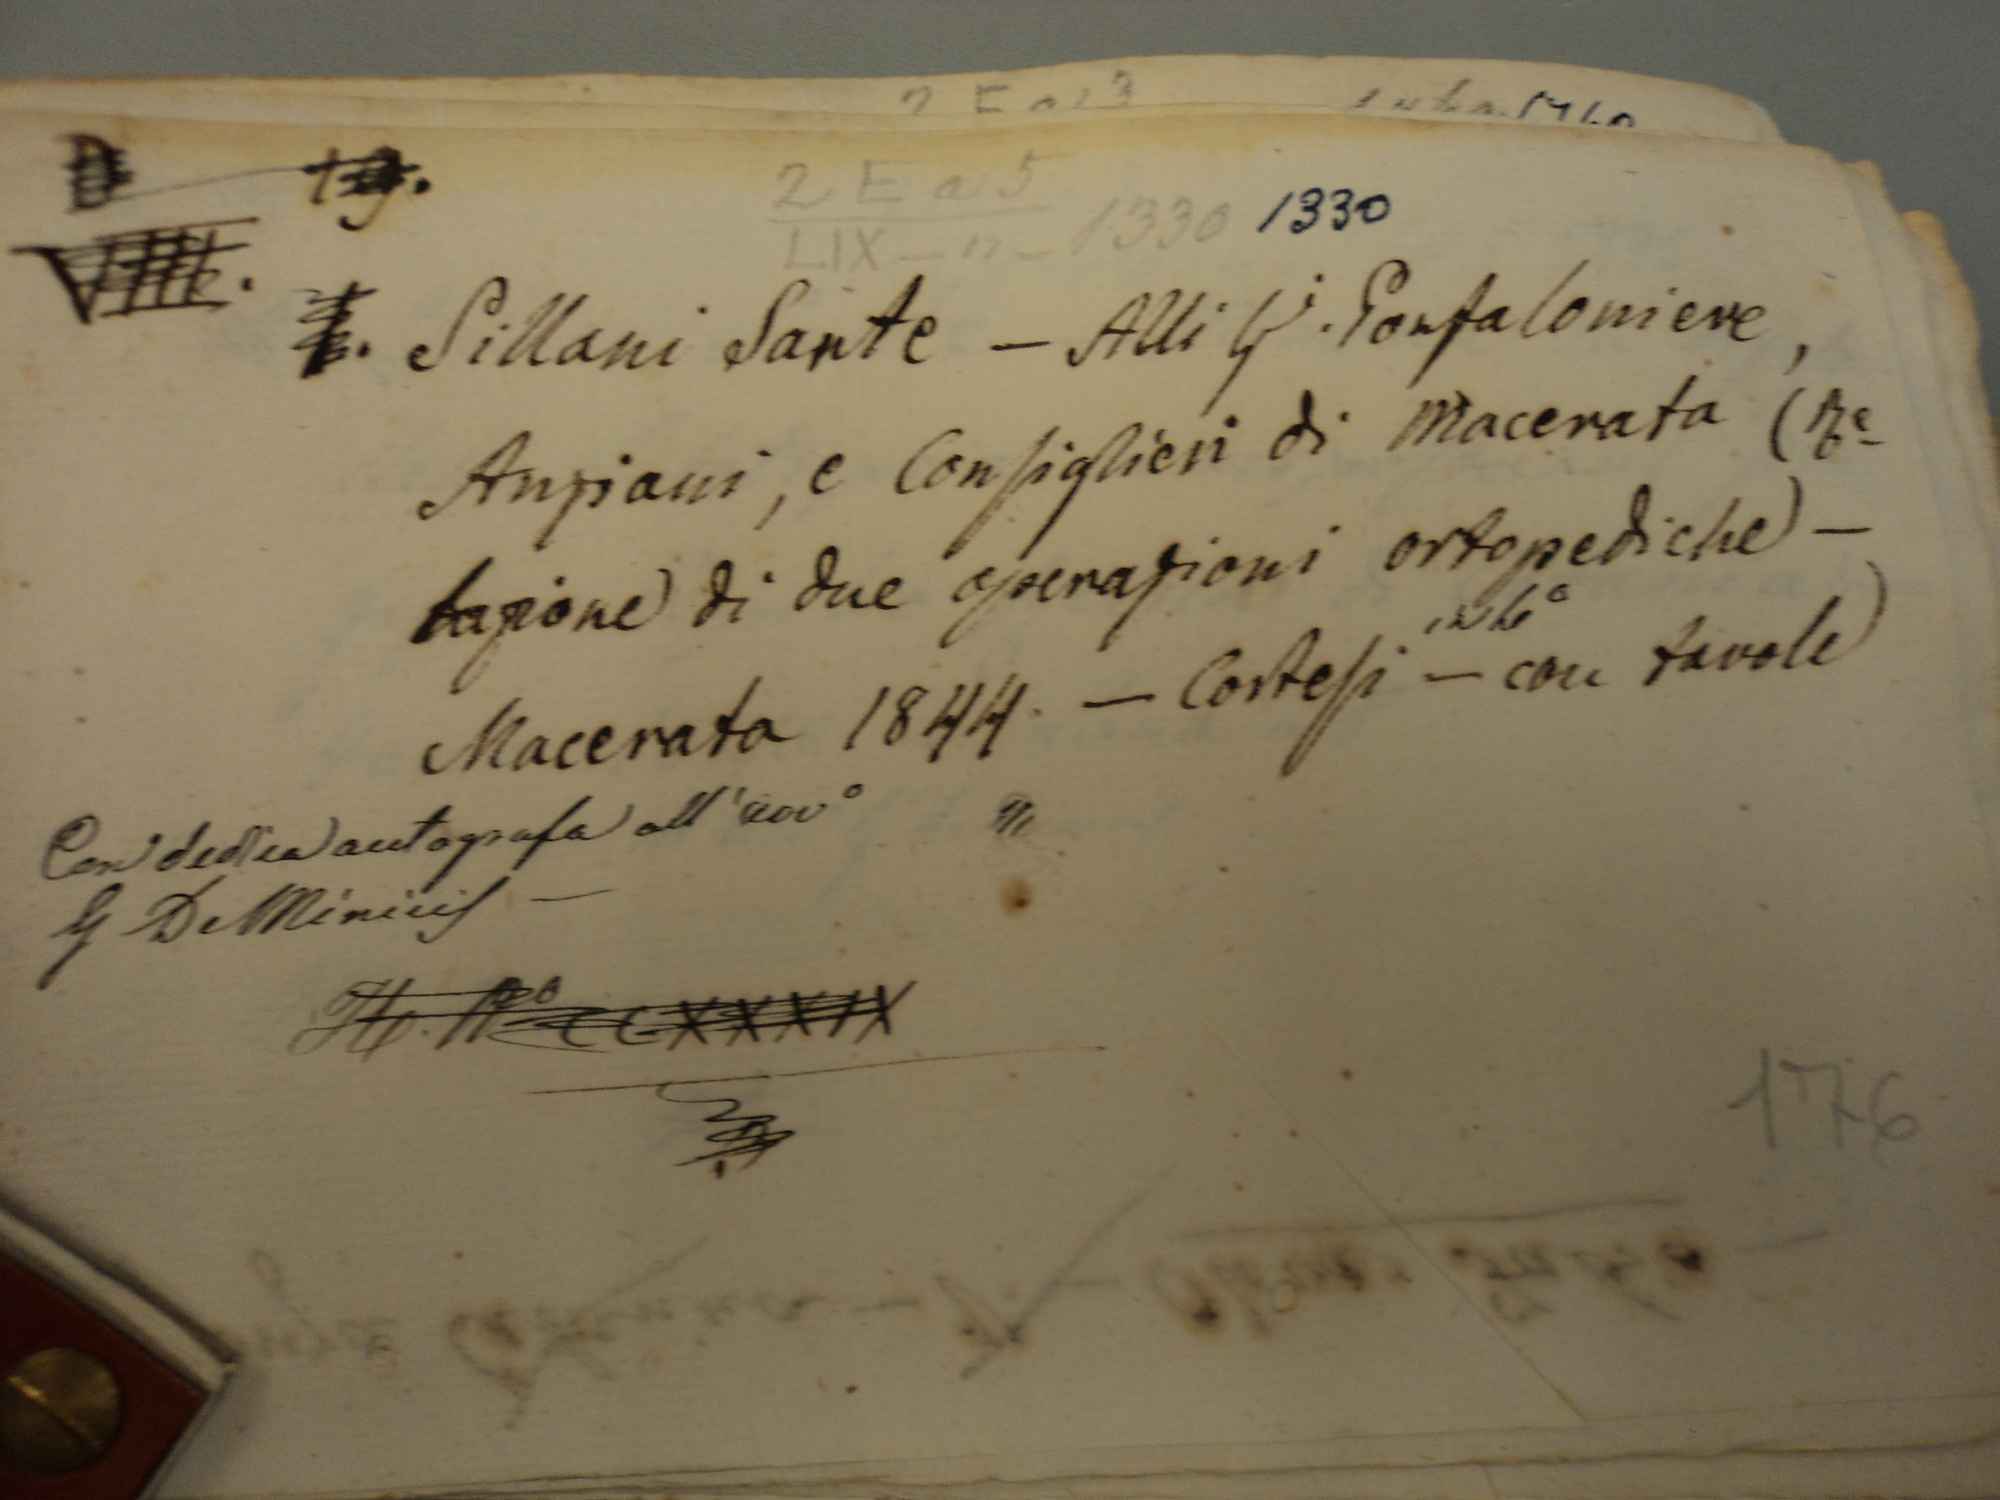 2 E a 5
LIX - n - 1330 1330
Sillani Sante - Alli Gi. Gonfaloniere,
Anziani, e Consiglieri di Macerata (Re-
lazione) di due operazioni ortopediche) -
in 16°
Macerata 1844. - Cortesi - con tavole)
Con dedica autografa all'avv°
G De Minicis -
176